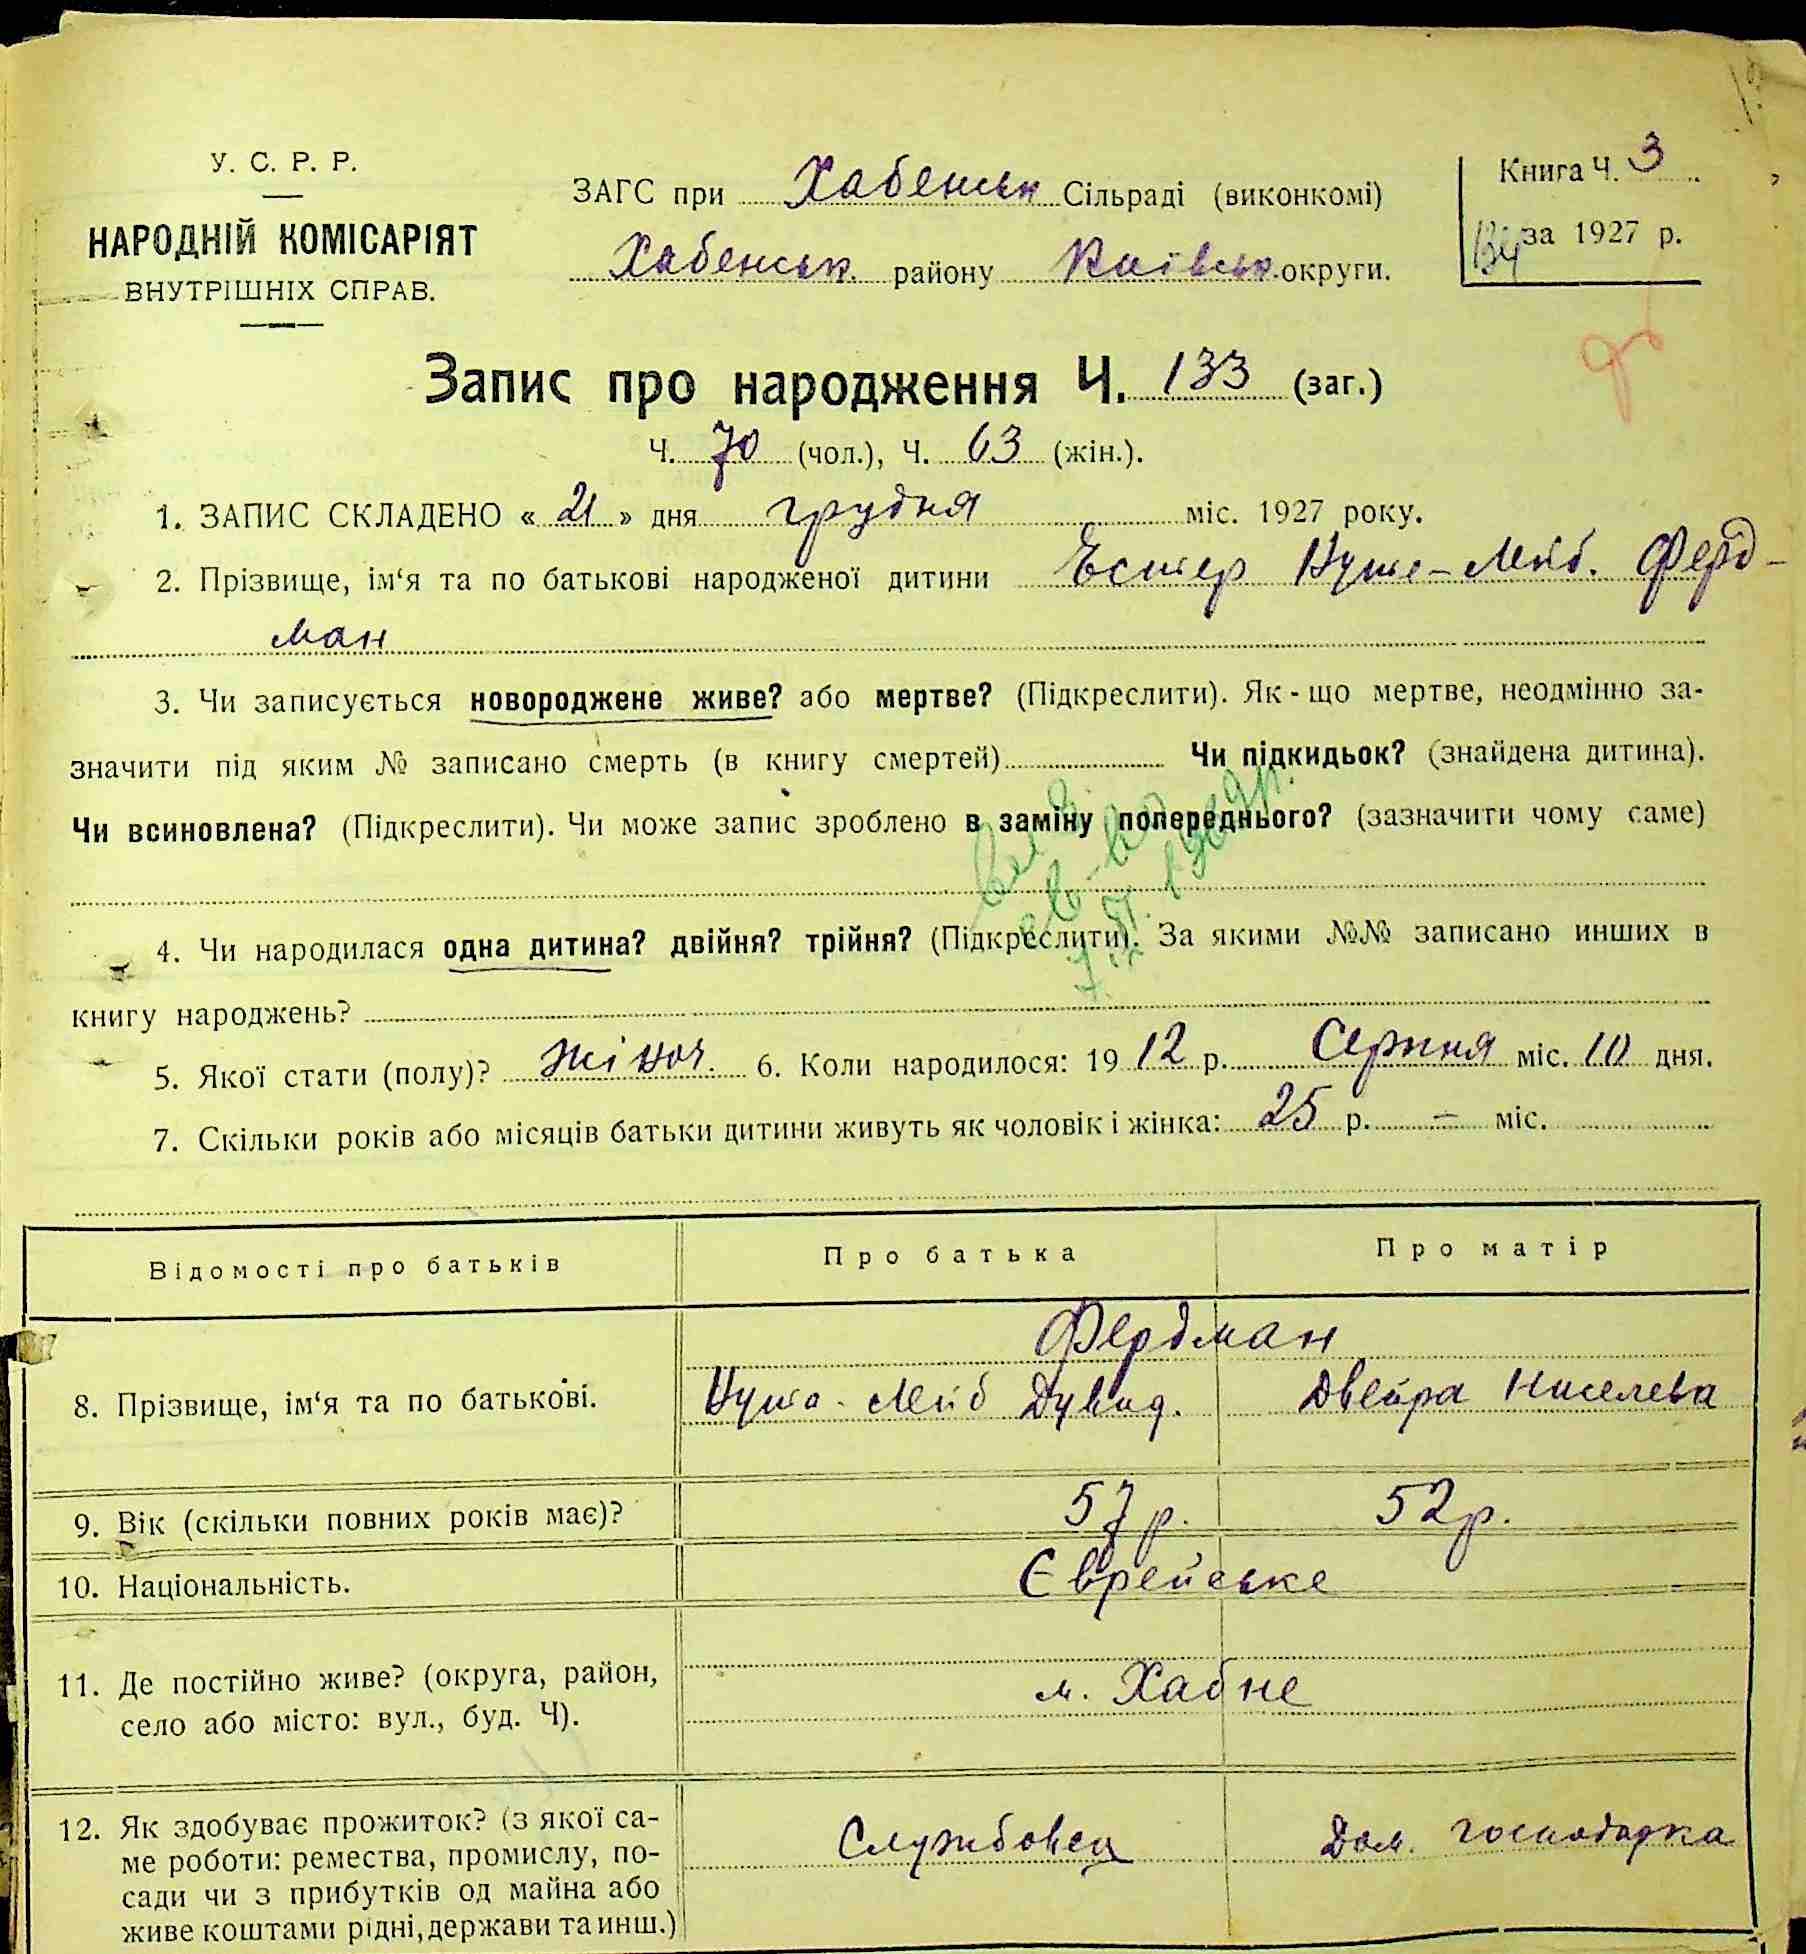 У. С. Р. Р.
НАРОДНІЙ КОМІСАРІЯТ
ВНУТРІШНІХ СПРАВ.
ЗАГС при Хабенськ Сільраді (виконкомі)
Хабенськ. району Київськ. округи.
Книга Ч. 3
за 1927 р.
Запис про народження Ч. 133 (заг.)
Ч. 70 (чол.), Ч. 63 (жін.).
1. ЗАПИС СКЛАДЕНО « 21 » дня грудня міс. 1927 року.
2. Прізвище, ім‘я та по батькові народженої дитини Естер Нута-Лейб. Ферд-
ман
3. Чи записується новороджене живе? або мертве? (Підкреслити). Як-що мертве, неодмінно за-
значити під яким № записано смерть (в книгу смертей) Чи підкидьок? (знайдена дитина).
Чи всиновлена? (Підкреслити). Чи може запис зроблено в заміну попереднього? (зазначити чому саме)
4. Чи народилася одна дитина? двійня? трійня? (Підкреслити). За якими №№ записано инших в
книгу народжень?
5. Якої стати (полу)? жіноч. 6. Коли народилося: 1912 р. Серпня міс. 10 дня.
7. Скільки років або місяців батьки дитини живуть як чоловік і жінка: 25 р. — міс.
Відомості про батьків Про батька Про матір
Фердман
8. Прізвище, ім‘я та по батькові. Нута-Лейб Дувид. Двейра Киселева
9. Вік (скільки повних років має)? 57 р. 52 р.
10. Національність. Єврейське
11. Де постійно живе? (округа, район,
село або місто: вул., буд. Ч).
м. Хабне
12. Як здобуває прожиток? (з якої са-
ме роботи: ремества, промислу, по-
сади чи з прибутків од майна або
живе коштами рідні, держави та инш.)
Службовец Дом. господарка